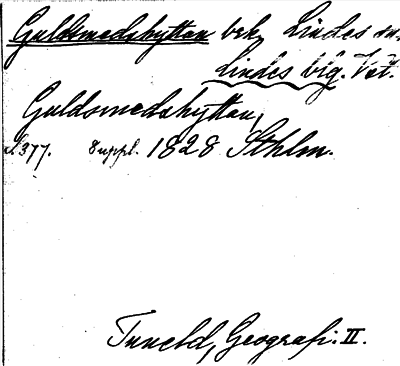 Guldsmedshyttan bek, Lindes sn,
Lindes blg. Vstl.
Guldsmedshyttan,
s. 377. Suppl. 1828 Sthlm.
Tuneld, Geografi. II.